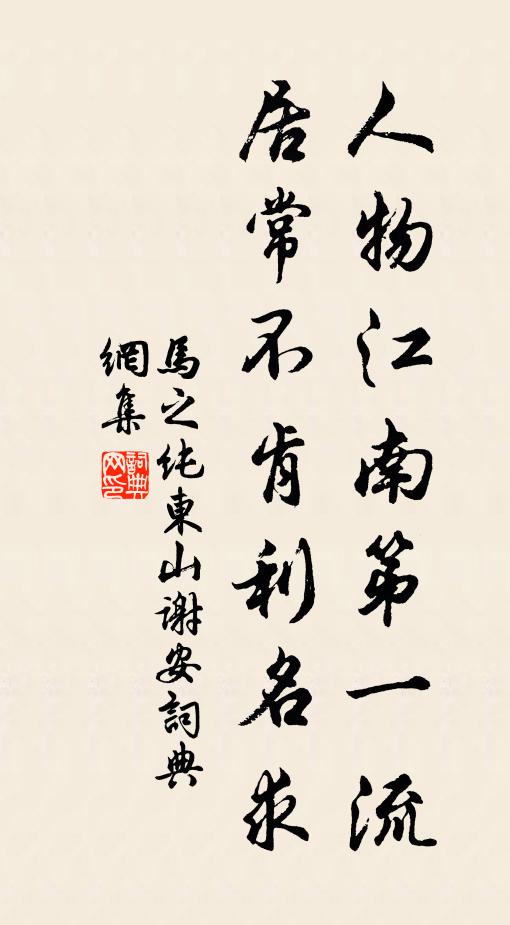 人物江南第一流
居常不肯利名求
馬之純東山謝安詞典
網集
詞典
网印